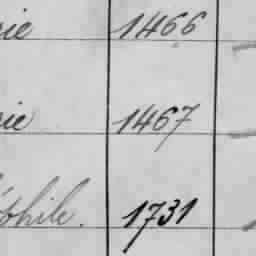 rie 1466
rie 1467
phile. 1731